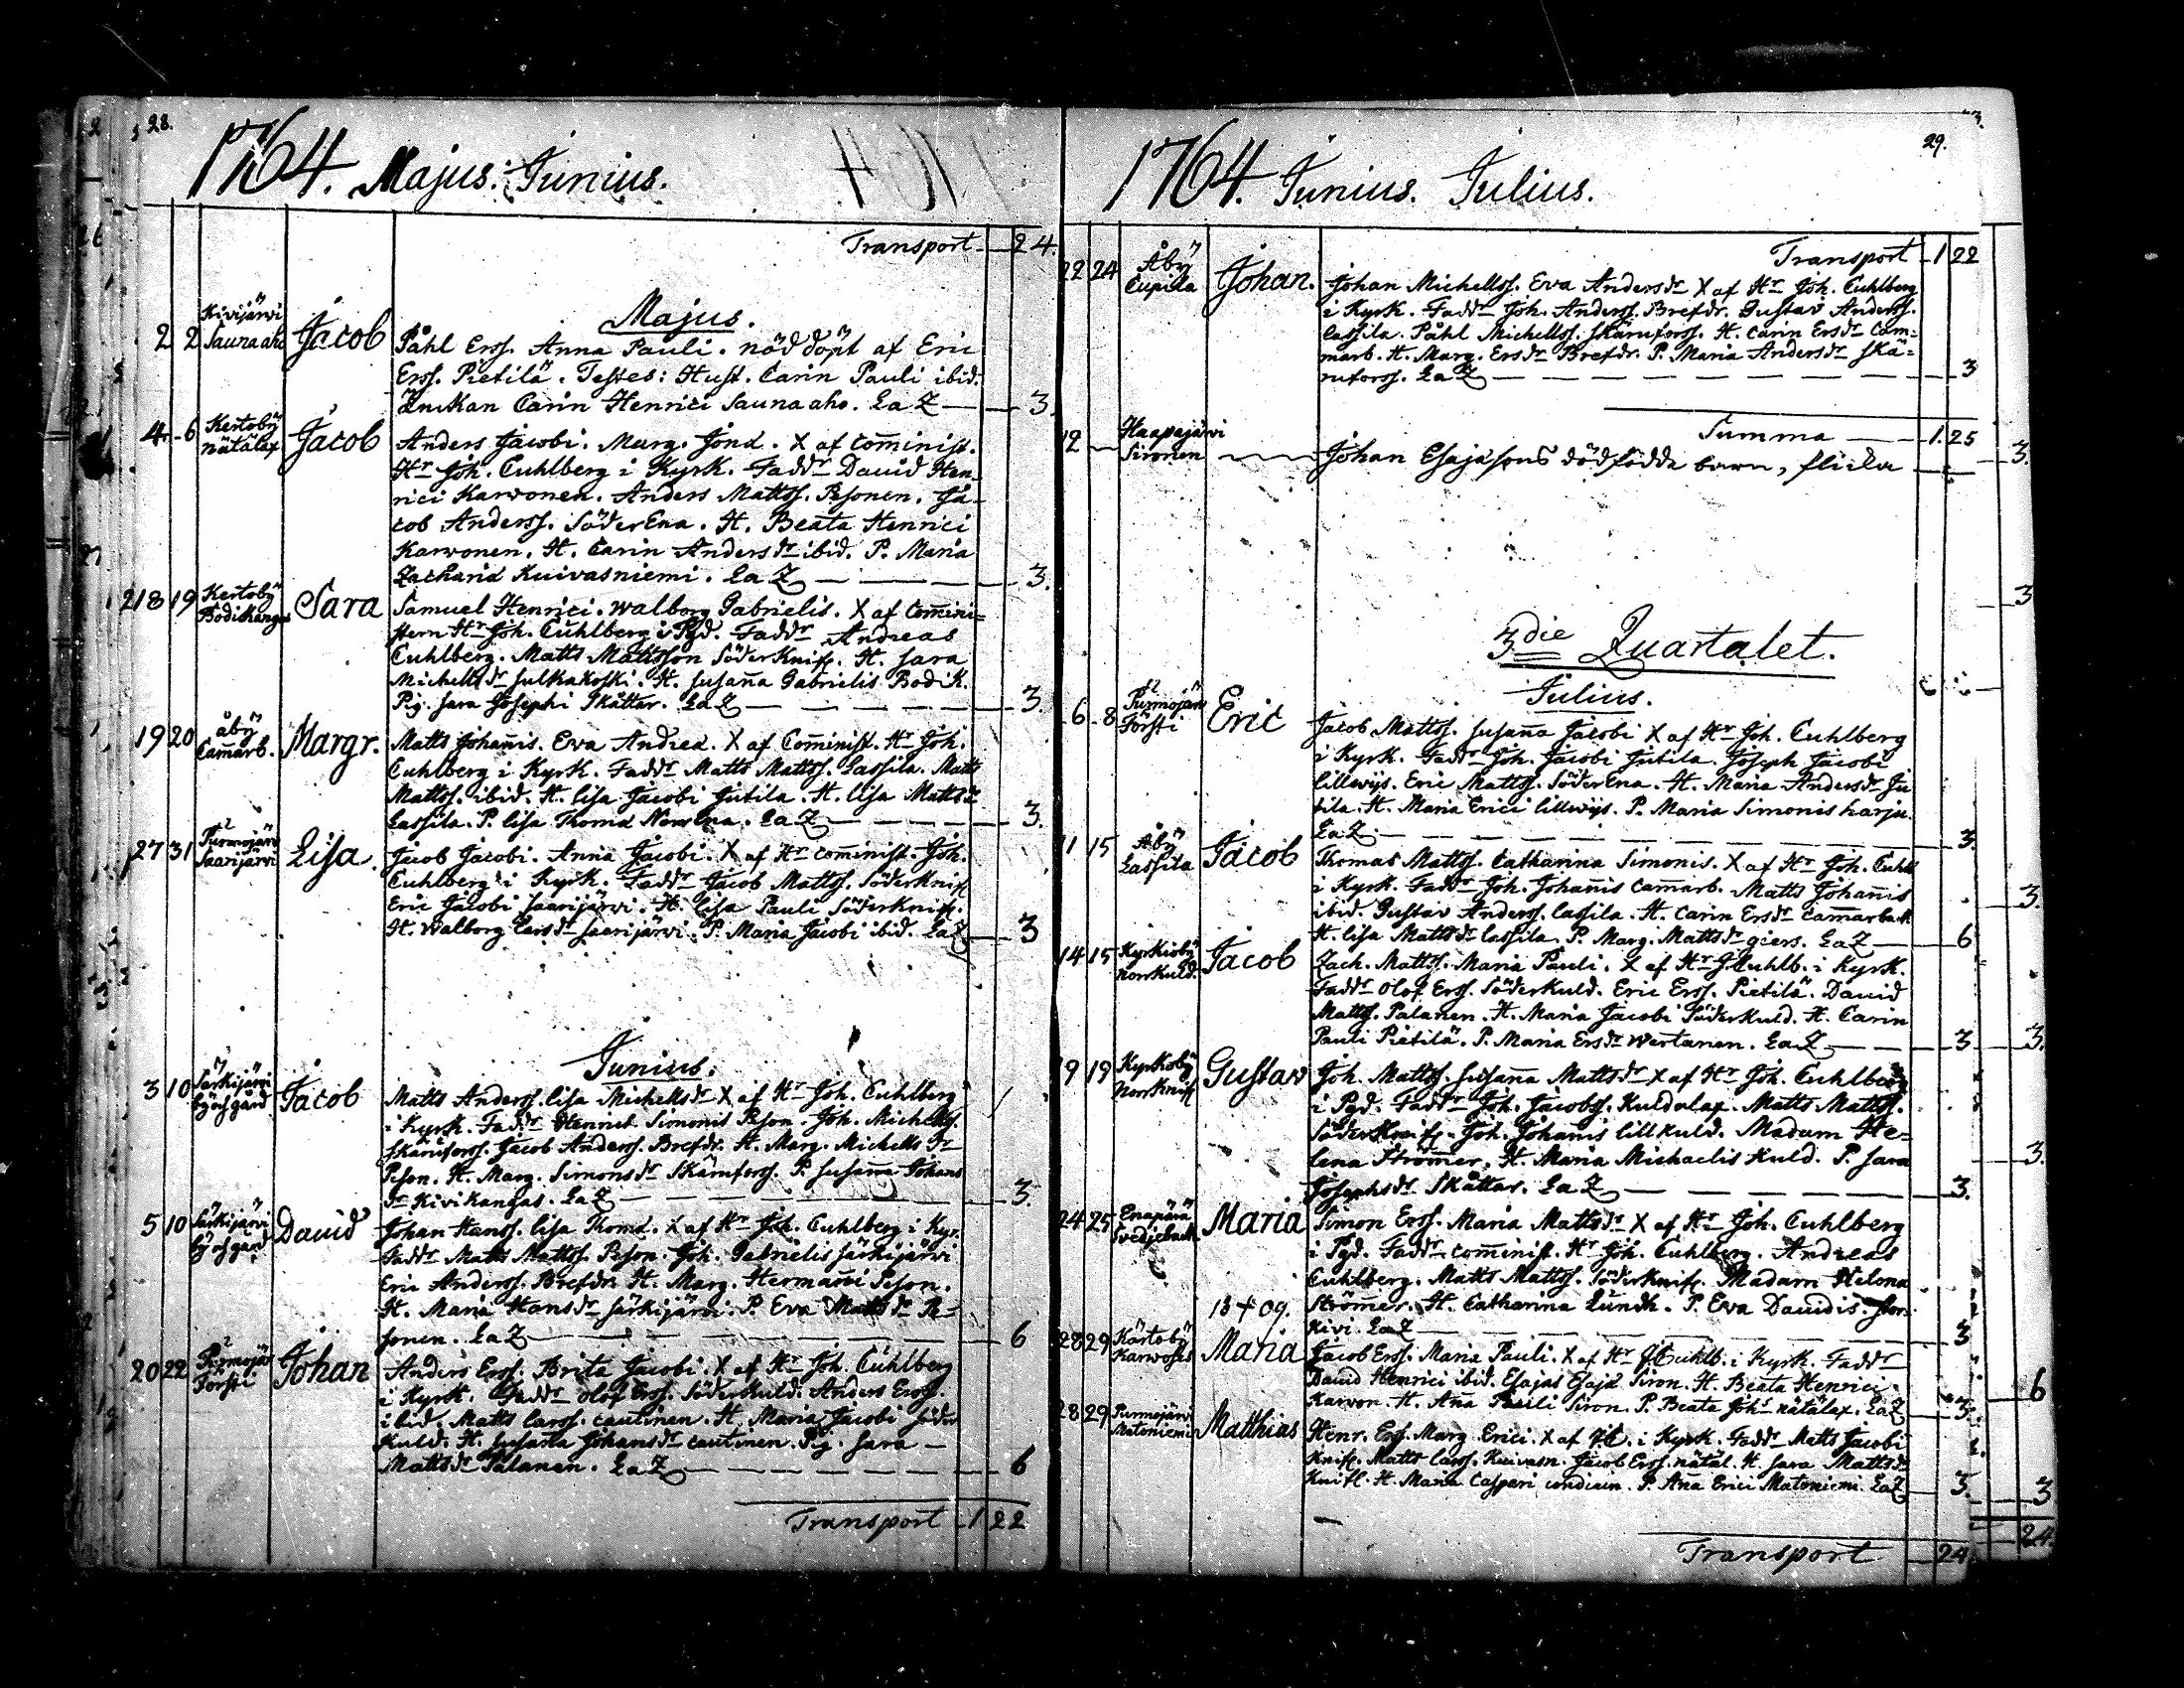 28.
1764. Majus: Junius.
Transport 24.
Majus.
2 2 Kivijärvi Saunaaho Jacob
Påhl Ersf. Anna Pauli. nöddöpt af Eric
Ersf. Pietilä. Testes: Hust. Carin Pauli ibid.
Änckan Carin Henrici Saunaaho. LaZ 3.
4. 6 Kertobÿ nätälax Jacob
Anders Jacobi. Marg. Jonæ. X af Cominist.
Hr Joh. Cuhlberg i Kyrk. Faddr David Hen-
rici Karvonen. Anders Mattsf. Pesonen. Ja-
cob Andersf. SöderEna. H. Beata Henrici
Karvonen. H. Carin Andersdr ibid. P. Maria
Zachariæ Kuivasniemi. LaZ 3.
18 19 Kertobÿ Sara
Samuel Henrici. Walborg Gabrielis. X af Comini-
stern Hr Joh. Cuhlberg i Pgd. Faddr Andreas
Cuhlberg. Matts Mattsson SöderKnif. H. Sara
Michellsdr Sulkakoski. H. Susaña Gabrielis Bodik.
Pig. Sara Josephi Skåttar. LaZ 3.
19 20 åbÿ Camarb. Margr.
Matts Johañis. Eva Andreæ. X af Cominist. Hr Joh.
Cuhlberg i Kyrk. Faddr Matts Mattsf. Lassila. Matts
Mattsf. ibid. H. Lisa Jacobi Jutila. H. Lisa Mattsdr
Lassila. P. Lisa Thomæ NorrEna. LaZ 3.
27 31 Purmojärv Saarijärvi Lisa.
Jacob Jacobi. Anna Jacobi. X af Hr Cominist. Joh.
Cuhlberg i Kyrk. Faddr Jacob Mattsf. SöderKnif
Eric Jacobi Saarijärvi. H. Lisa Pauli SöderKnif.
H. Walborg Larsdr Saarijärvi. P. Maria Jacobi ibid. LaZ 3
Junius.
3 10 Särkijärvi Jacob
Matts Andersf. Lisa Michellsdr X af Hr Joh. Cuhlberg
i Kyrk. Faddr Henric Simonis Peson. Joh. Michellsf.
Skämforss. Jacob Andersf. Brefdr. H. Marg. Michells dr
Peson. H. Marg. Simonsdr Skämforss. P. Susaña Johans
dr Kivikangas. LaZ 3.
5 10 Särkijärvi David
Johan Hansf. Lisa Thomæ. X af Hr Joh. Cuhlberg i Kyr.
Faddr Matts Mattsf. Peson. Joh. Gabrielis Särkijärvi
Eric Andersf. Brefdr. H. Marg. Hermañi Peson.
H. Maria Hansdr Särkijärvi. P. Eva Mattsdr Pe-
sonen. LaZ 6
20 22 Purmojär Försti Johan
Anders Ersf. Brita Jacobi. X af Hr Joh. Cuhlberg
i Kyrk. Faddr Olof Ersf. SöderKuld. Anders Ersf.
ibid. Matts Larsf. Cautinen. H. Maria Jacobi Söder
Kuld. H. Susaña Johansdr Cautinen. Pig. Sara
Mattsdr Palanen. LaZ 6
Transport 1 22
29.
1764. Junius. Julius.
Transport 1 22
22 24 Åbÿ Cupila Johan.
Johan Michellsf. Eva Andersdr X af Hr Joh. Cuhlberg
i Kyrk. Faddr Joh. Andersf. Brefdr. Gustav Andersf.
Lassila. Påhl Michellsf. Skämforss. H. Carin Ersdr Cam-
marb. H. Marg. Ersdr Brefdr. P. Maria Andersdr Skä-
mforss. LaZ 3
Summa 1. 25
12 Haapajärvi Sironen
Johan Esajæsons dödfödde barn, flicka
3die Quartalet.
Julius.
6 8 Purmojärv Försti Eric
Jacob Mattsf. Susaña Jacobi X af Hr Joh. Cuhlberg
i Kyrk. Faddr Joh. Jacobi Jutila. Joseph Jacobi
Lillwijs. Eric Mattsf. SöderEna. H. Maria Andersdr Ju
tila. H. Maria Erici Lillwijs. P. Maria Simonis Harju.
LaZ 3.
11 15 Åbÿ Lassila Jacob
Thomas Mattsf. Catharina Simonis. X af Hr Joh. Cuhlb
i Kyrk. Faddr Joh. Johañis Camarb. Matts Johañis
ibid. Gustav Andersf. Lassila. H. Carin Ersdr Camarback
H. Lisa Mattsdr Lassila. P. Marg. Mattsdr giers. LaZ 6
14 15 Kyrkiobÿ Norrkuld. Jacob
Zach. Mattsf. Maria Pauli. X af Hr J. Cuhlb. i Kyrk.
Faddr Olof Ersf. SöderKuld. Eric Ersf. Pietilä. David
Mattsf. Palanen. H. Maria Jacobi SöderKuld. H. Carin
Pauli Pietilä. P. Maria Ersdr Wertanen. LaZ 3
19 19 Kyrkobÿ Norrknif Gustav
Joh. Mattsf. Susaña Mattsdr X af Hr Joh. Cuhlberg
i Pgd. Faddr Joh. Jacobsf. Kuldalax. Matts Mattsf.
SöderKnif. Joh. Johañis Lillkuld. Madam He-
lena Strömer. H. Maria Michaelis Kuld. P. Sara
Josephsdr Skåttar. LaZ 3.
24 25 Enapärä Svedjeback Maria
Simon Ersf. Maria Mattsdr X af Hr Joh. Cuhlberg
i Pgd. Faddr Cominist. Hr Joh. Cuhlberg. Andreas
Cuhlberg. Matts Mattsf. SöderKnif. Madam Helena
Strömer. H. Catharina Lundh. P. Eva Davidis Stor-
kivi. LaZ 3
13 + 09.
28 29 Kärtobÿ Maria
Jacob Ersf. Maria Pauli. X af Hr J. Cuhlb. i Kyrk. Faddr
David Henrici ibid. Esajas Esajæ Siron. H. Beata Henrici
Karvon. H. Aña Pauli Siron. P. Beata Johs nätälax. LaZ 3.
28 29 Purmojärvi Matoniemi Matthias
Henr. Ersf. Marg. Erici. X af JC. i Kyrk. Faddr Matts Jacobi
Knif. Matts Larsf. Kuivasn. Jacob Ersf. nätäl. H. Sara Mattsdr
Knif. H. Maria Caspari P. Aña Erici Matoniemi. LaZ 3.
Transport 24
3.
3
3.
3.
3.
6
3
24.